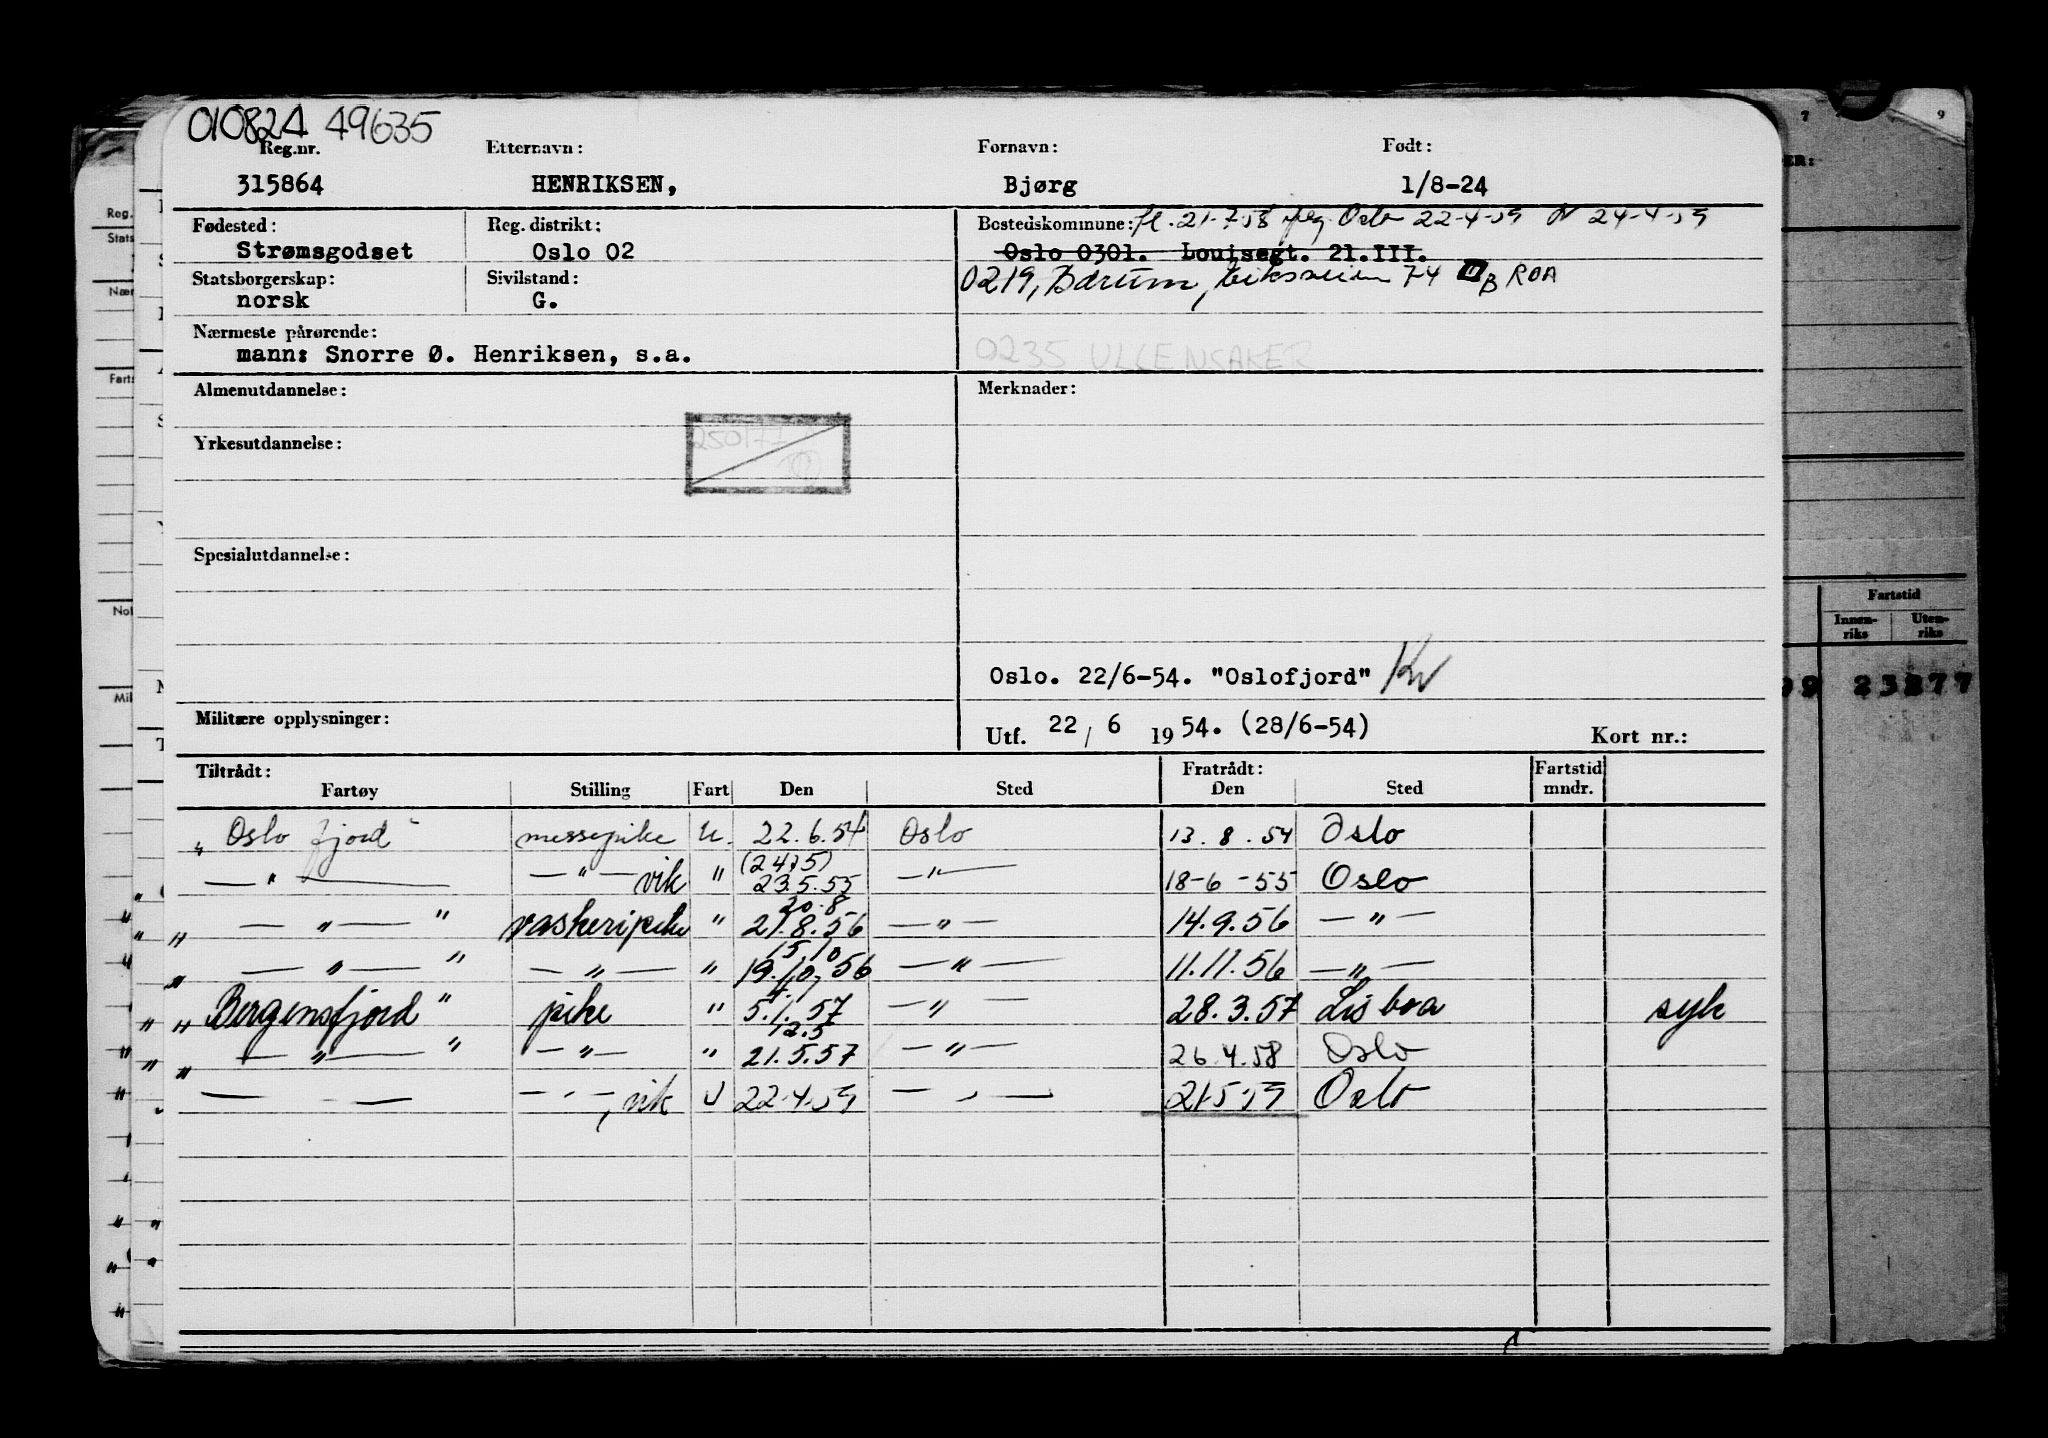 010824 49635
Reg.nr. Etternavn: Fornavn: Født:
315864 HENRIKSEN, Bjørg 1/8-24
Fødested: Reg. distrikt: Bostedskommune: fl. 21-7-58 Oslo 22-4-59 24-4-59
Strømsgodset Oslo 02 Oslo 0301. Louisegt. 21.III.
Statsborgerskap: Sivilstand: 0219, Bærum, 74 B ROA
norsk G.
Nærmeste pårørende:
mann: Snorre Ø. Henriksen, s.a. 0235 ULLENSAKER
Almenutdannelse: Merknader:
250177
Yrkesutdannelse:
Spesialutdannelse:
Oslo. 22/6-54. "Oslofjord"
Militære opplysninger: Utf. 22 / 6 1954. (28/6-54) Kort nr.:
Tiltrådt: Fratrådt: Fartstid
Fartøy Stilling Fart Den Sted Den Sted mndr.
"Oslofjord" messepike U. 22.6.54 Oslo 13.8.54 Oslo
— " — — " — vik " (24/5) 23.5.55 — " — 18-6-55 Oslo
" — " — " vaskeripike " 20.8 21.8.56 — " — 14.9.56 — " —
" — " — " — " — " 15.10 19.10.56 — " — 11.11.56 — " —
" Bergensfjord " pike " 5.1.57 — " — 28.3.57 Lisboa syk
" — " — " — " — " 12.5 21.5.57 — " — 26.4.58 Oslo
— — — " —, vik U 22-4-59 — " — 21-5-59 Oslo
7 9
Fartstid
Innen-riks Uten-riks
99 23277